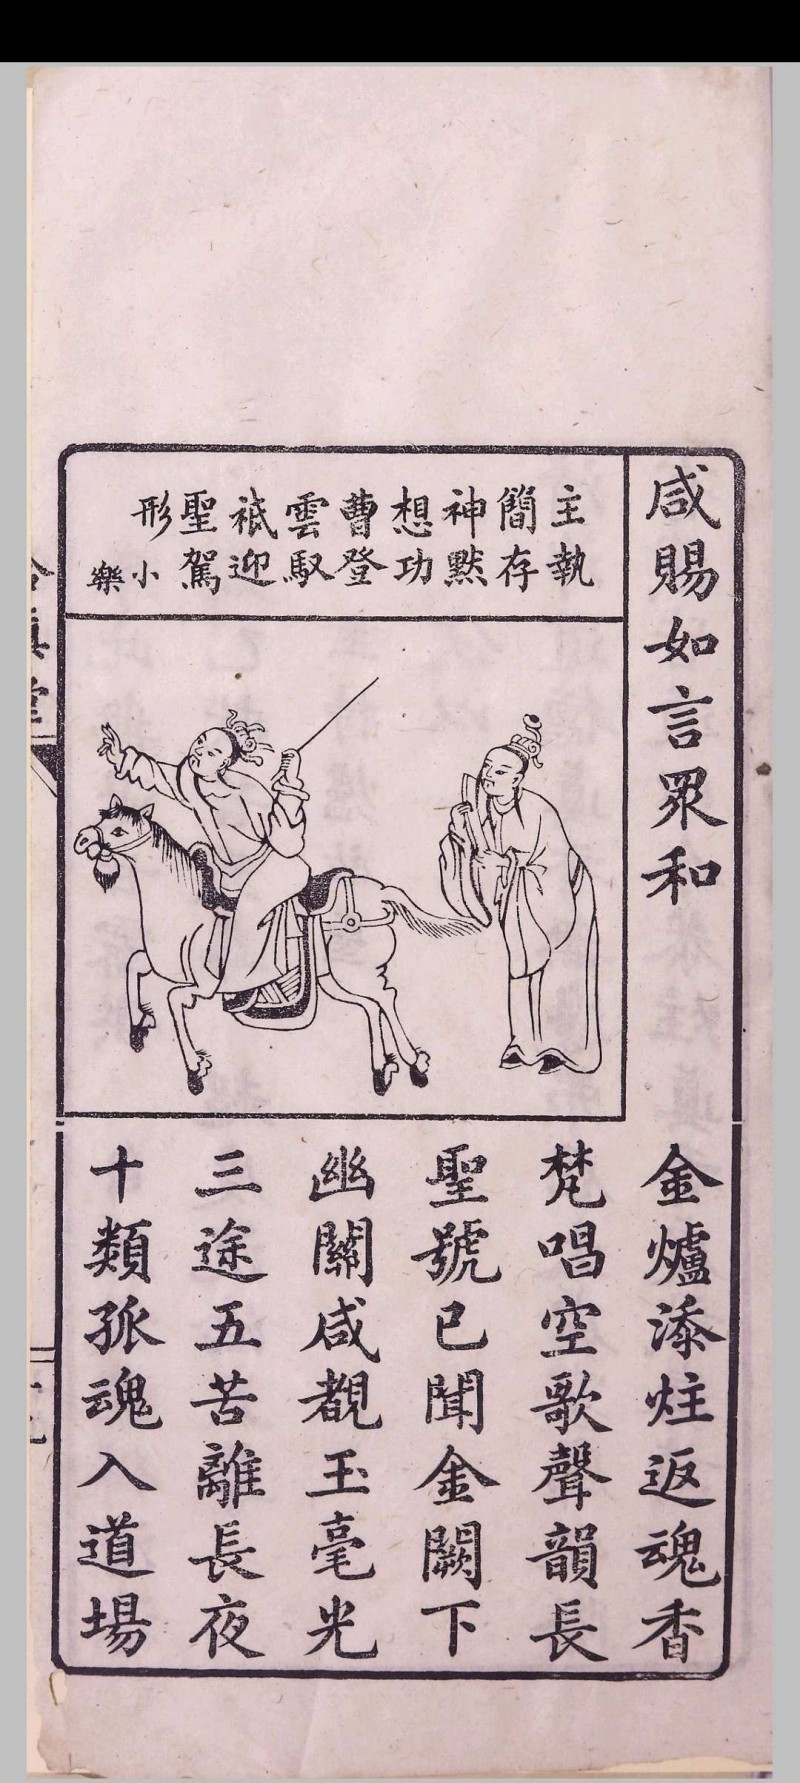 咸賜如言眾和
主執
簡存
神默
想功
曹登
雲馭
祇迎
聖駕
形小
樂
金爐添炷返魂香
梵唱空歌聲韻長
聖號已聞金闕下
幽關咸覩玉毫光
三途五苦離長夜
十類孤魂入道場